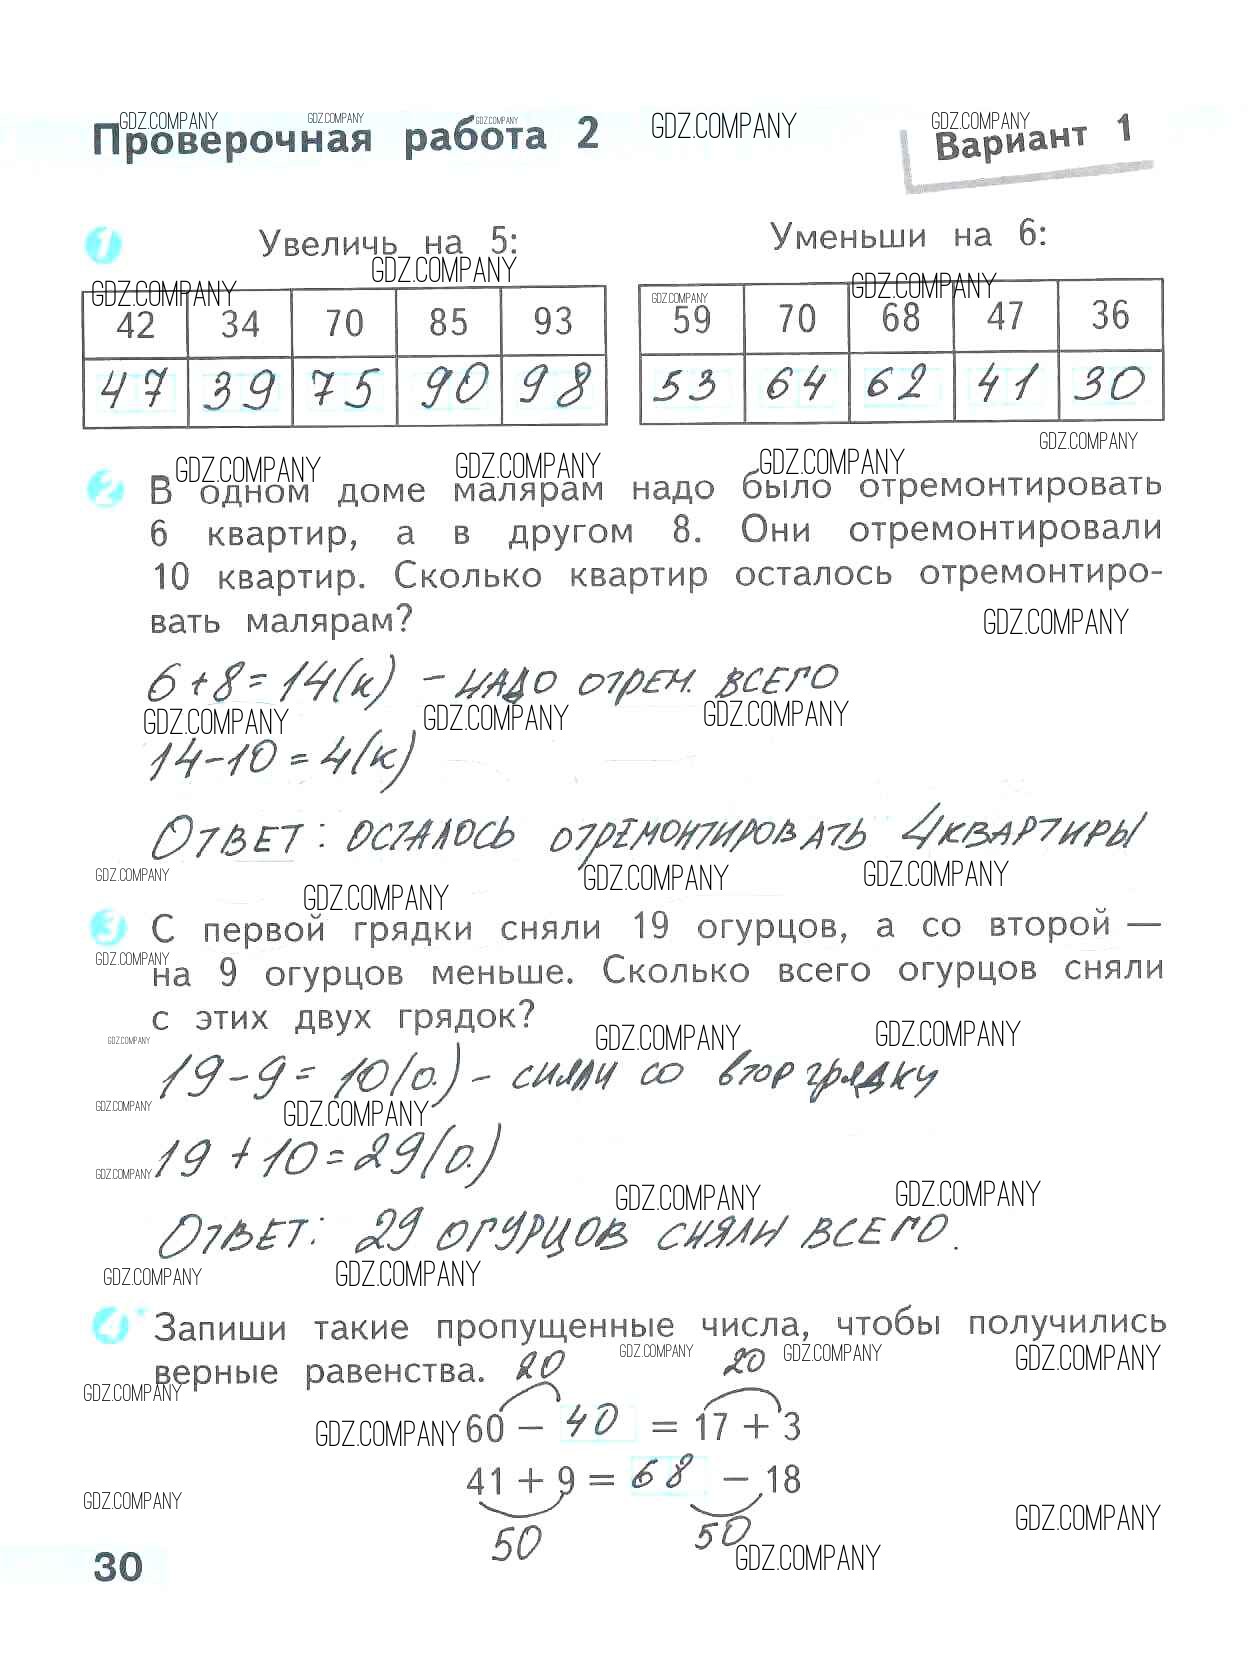 Проверочная работа 2
Вариант 1
1 Увеличь на 5:
42 34 70 85 93
47 39 75 90 98
Уменьши на 6:
59 70 68 47 36
53 64 62 41 30
2 В одном доме малярам надо было отремонтировать
6 квартир, а в другом 8. Они отремонтировали
10 квартир. Сколько квартир осталось отремонтиро-
вать малярам?
6+8=14(к) – надо отрем. всего
14-10=4(к)
Ответ: осталось отремонтировать 4 квартиры
3 С первой грядки сняли 19 огурцов, а со второй —
на 9 огурцов меньше. Сколько всего огурцов сняли
с этих двух грядок?
19-9=10(о.) – сняли со втор грядку
19+10=29(о.)
Ответ: 29 огурцов сняли всего.
4* Запиши такие пропущенные числа, чтобы получились
верные равенства.
20 20
60 − 40 = 17 + 3
41 + 9 = 68 − 18
50 50
30
GDZ.COMPANY